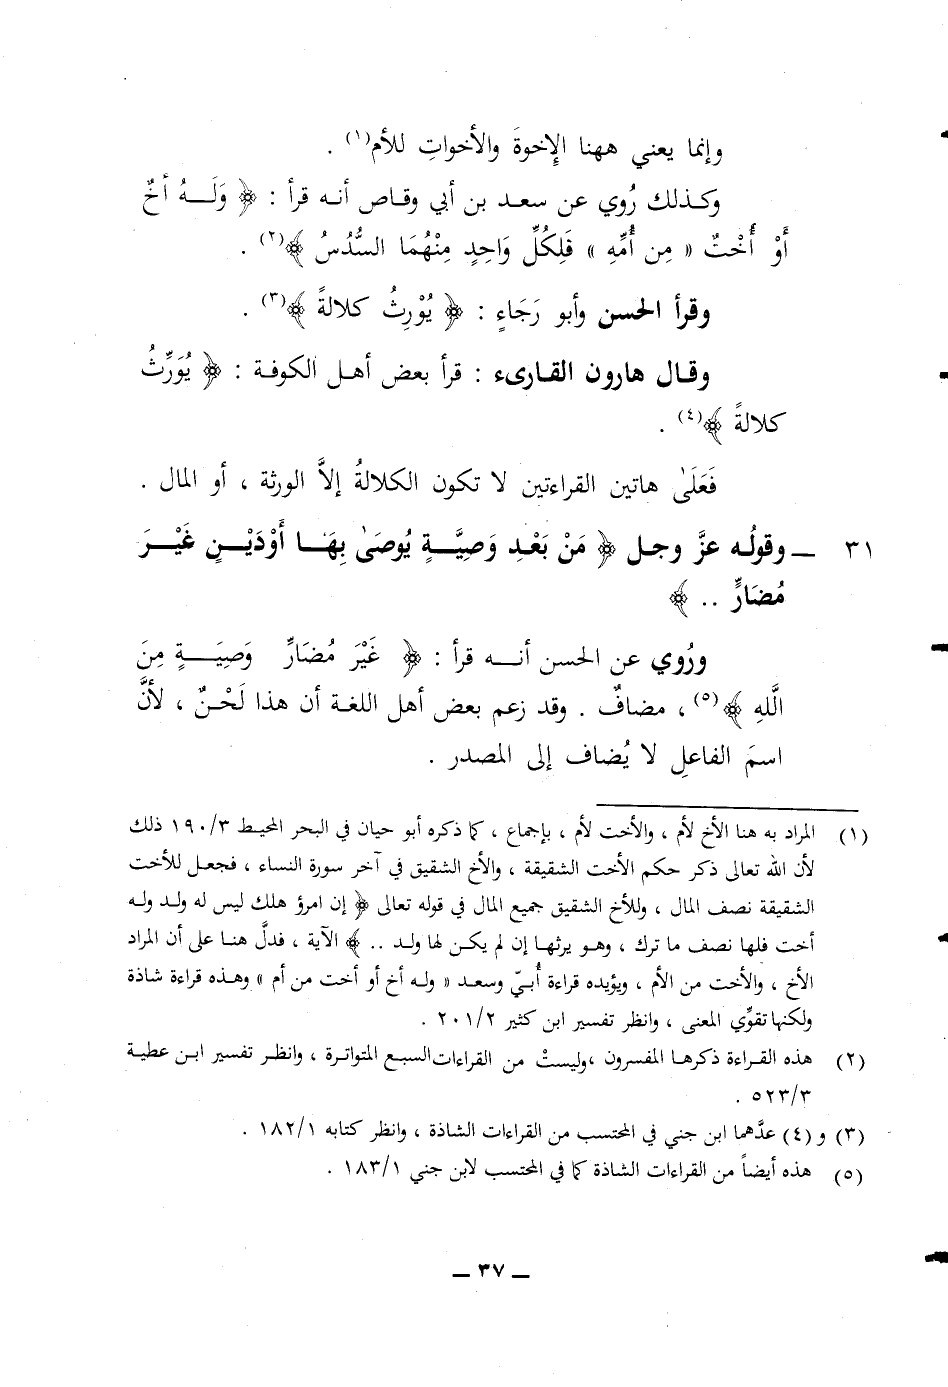 وإنما يعني ههنا الإِخوةَ والأخواتِ للأم(١) .
وكذلك رُوي عن سعد بن أبي وقاص أنه قرأ : ﴿ وَلَهُ أخٌ
أَوْ أُخْتٌ « مِن أُمِّهِ » فَلِكُلِّ وَاحِدٍ مِنْهُمَا السُّدُسُ ﴾(٢) .
وقرأ الحسن وأبو رَجَاءٍ : ﴿ يُوْرِثُ كلالةً ﴾(٣) .
وقال هارون القارىء : قرأ بعض أهل الكوفة : ﴿ يُوَرِّثُ
كلالةً ﴾(٤) .
فَعَلَىٰ هاتين القراءتين لا تكون الكلالةُ إلاَّ الورثة ، أو المال .
٣١ ــ وقولُه عزَّ وجل ﴿ مَنْ بَعْدِ وَصِيَّةٍ يُوصَىٰ بِهَا أَوْدَيْنٍ غَيْرَ
مُضَارٍّ .. ﴾
ورُوي عن الحسن أنه قرأ : ﴿ غَيْرَ مُضَارِّ وَصِيَةٍ مِنَ
الَّلهِ ﴾(٥) ، مضافٌ . وقد زعم بعض أهل اللغة أن هذا لَحْنٌ ، لأنَّ
اسمَ الفاعلِ لا يُضاف إلى المصدر .
(١) المراد به هنا الأخ لأم ، والأخت لأم ، بإجماع ، كما ذكره أبو حيان في البحر المحيط ١٩٠/٣ ذلك
لأن الله تعالى ذكر حكم الأخت الشقيقة ، والأخ الشقيق في آخر سورة النساء ، فجعل للأخت
الشقيقة نصف المال ، وللأخ الشقيق جميع المال في قوله تعالى ﴿ إن امرؤ هلك ليس له ولد وله
أخت فلها نصف ما ترك ، وهو يرثها إن لم يكن لها ولد .. ﴾ الآية ، فدلَّ هنا على أن المراد
الأخ ، والأخت من الأم ، ويؤيده قراءة أُبيّ وسعد « وله أخ أو أخت من أم » وهذه قراءة شاذة
ولكنها تقوِّي المعنى ، وانظر تفسير ابن كثير ٢٠١/٢ .
(٢) هذه القراءة ذكرها المفسرون ،وليستْ من القراءات السبع المتواترة ، وانظر تفسير ابن عطية
٥٢٣/٣ .
(٣) و (٤) عدَّهما ابن جني في المحتسب من القراءات الشاذة ، وانظر كتابه ١٨٢/١ .
(٥) هذه أيضاً من القراءات الشاذة كما في المحتسب لابن جني ١٨٣/١ .
ــ ٣٧ ــ